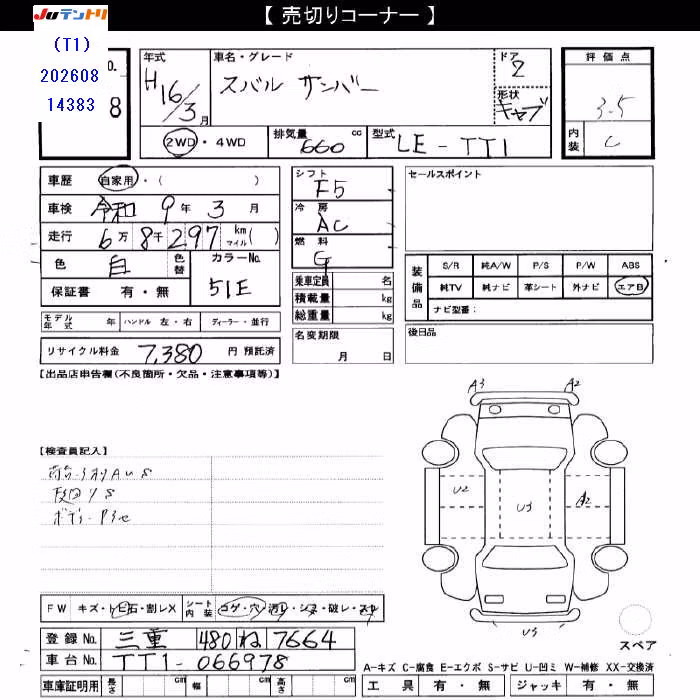 【 売切りコーナー 】
JUテントリ
(T1)
202608
14383
8
年式
H16/3月
車名・グレード
スバル サンバー
ドア
2
形状
キャブ
評価点
3.5
内装
C
2WD・4WD
排気量 660 cc
型式 LE-TT1
車歴 自家用・( )
車検 令和 9年 3月
走行 6万8千297 km マイル( )
色 白 色替 カラーNo. 51E
保証書 有・無
シフト F5
冷房 AC
燃料 G
乗車定員 名
積載量 kg
総重量 kg
セールスポイント
装備品
S/R 純A/W P/S P/W ABS
純TV 純ナビ 革シート 外ナビ エアB
ナビ型番:
モデル年式 年 ハンドル 左・右 ディーラー・並行
名変期限
月 日
後日品
リサイクル料金 7,380 円 預託済
【出品店申告欄(不良箇所・欠品・注意事項等)】
A3 A2
【検査員記入】
U2 U3 A2
U3
スペア
FW キズ・トビ石・割レX シート内装 コゲ・穴・汚レ・シミ・破レ・スレ
登録No. 三重 480 ね 7664
車台No. TT1-066978
A-キズ C-腐食 E-エクボ S-サビ U-凹ミ W-補修 XX-交換済
車庫証明用 長さ cm 幅 cm 高さ cm
工具 有・無 ジャッキ 有・無